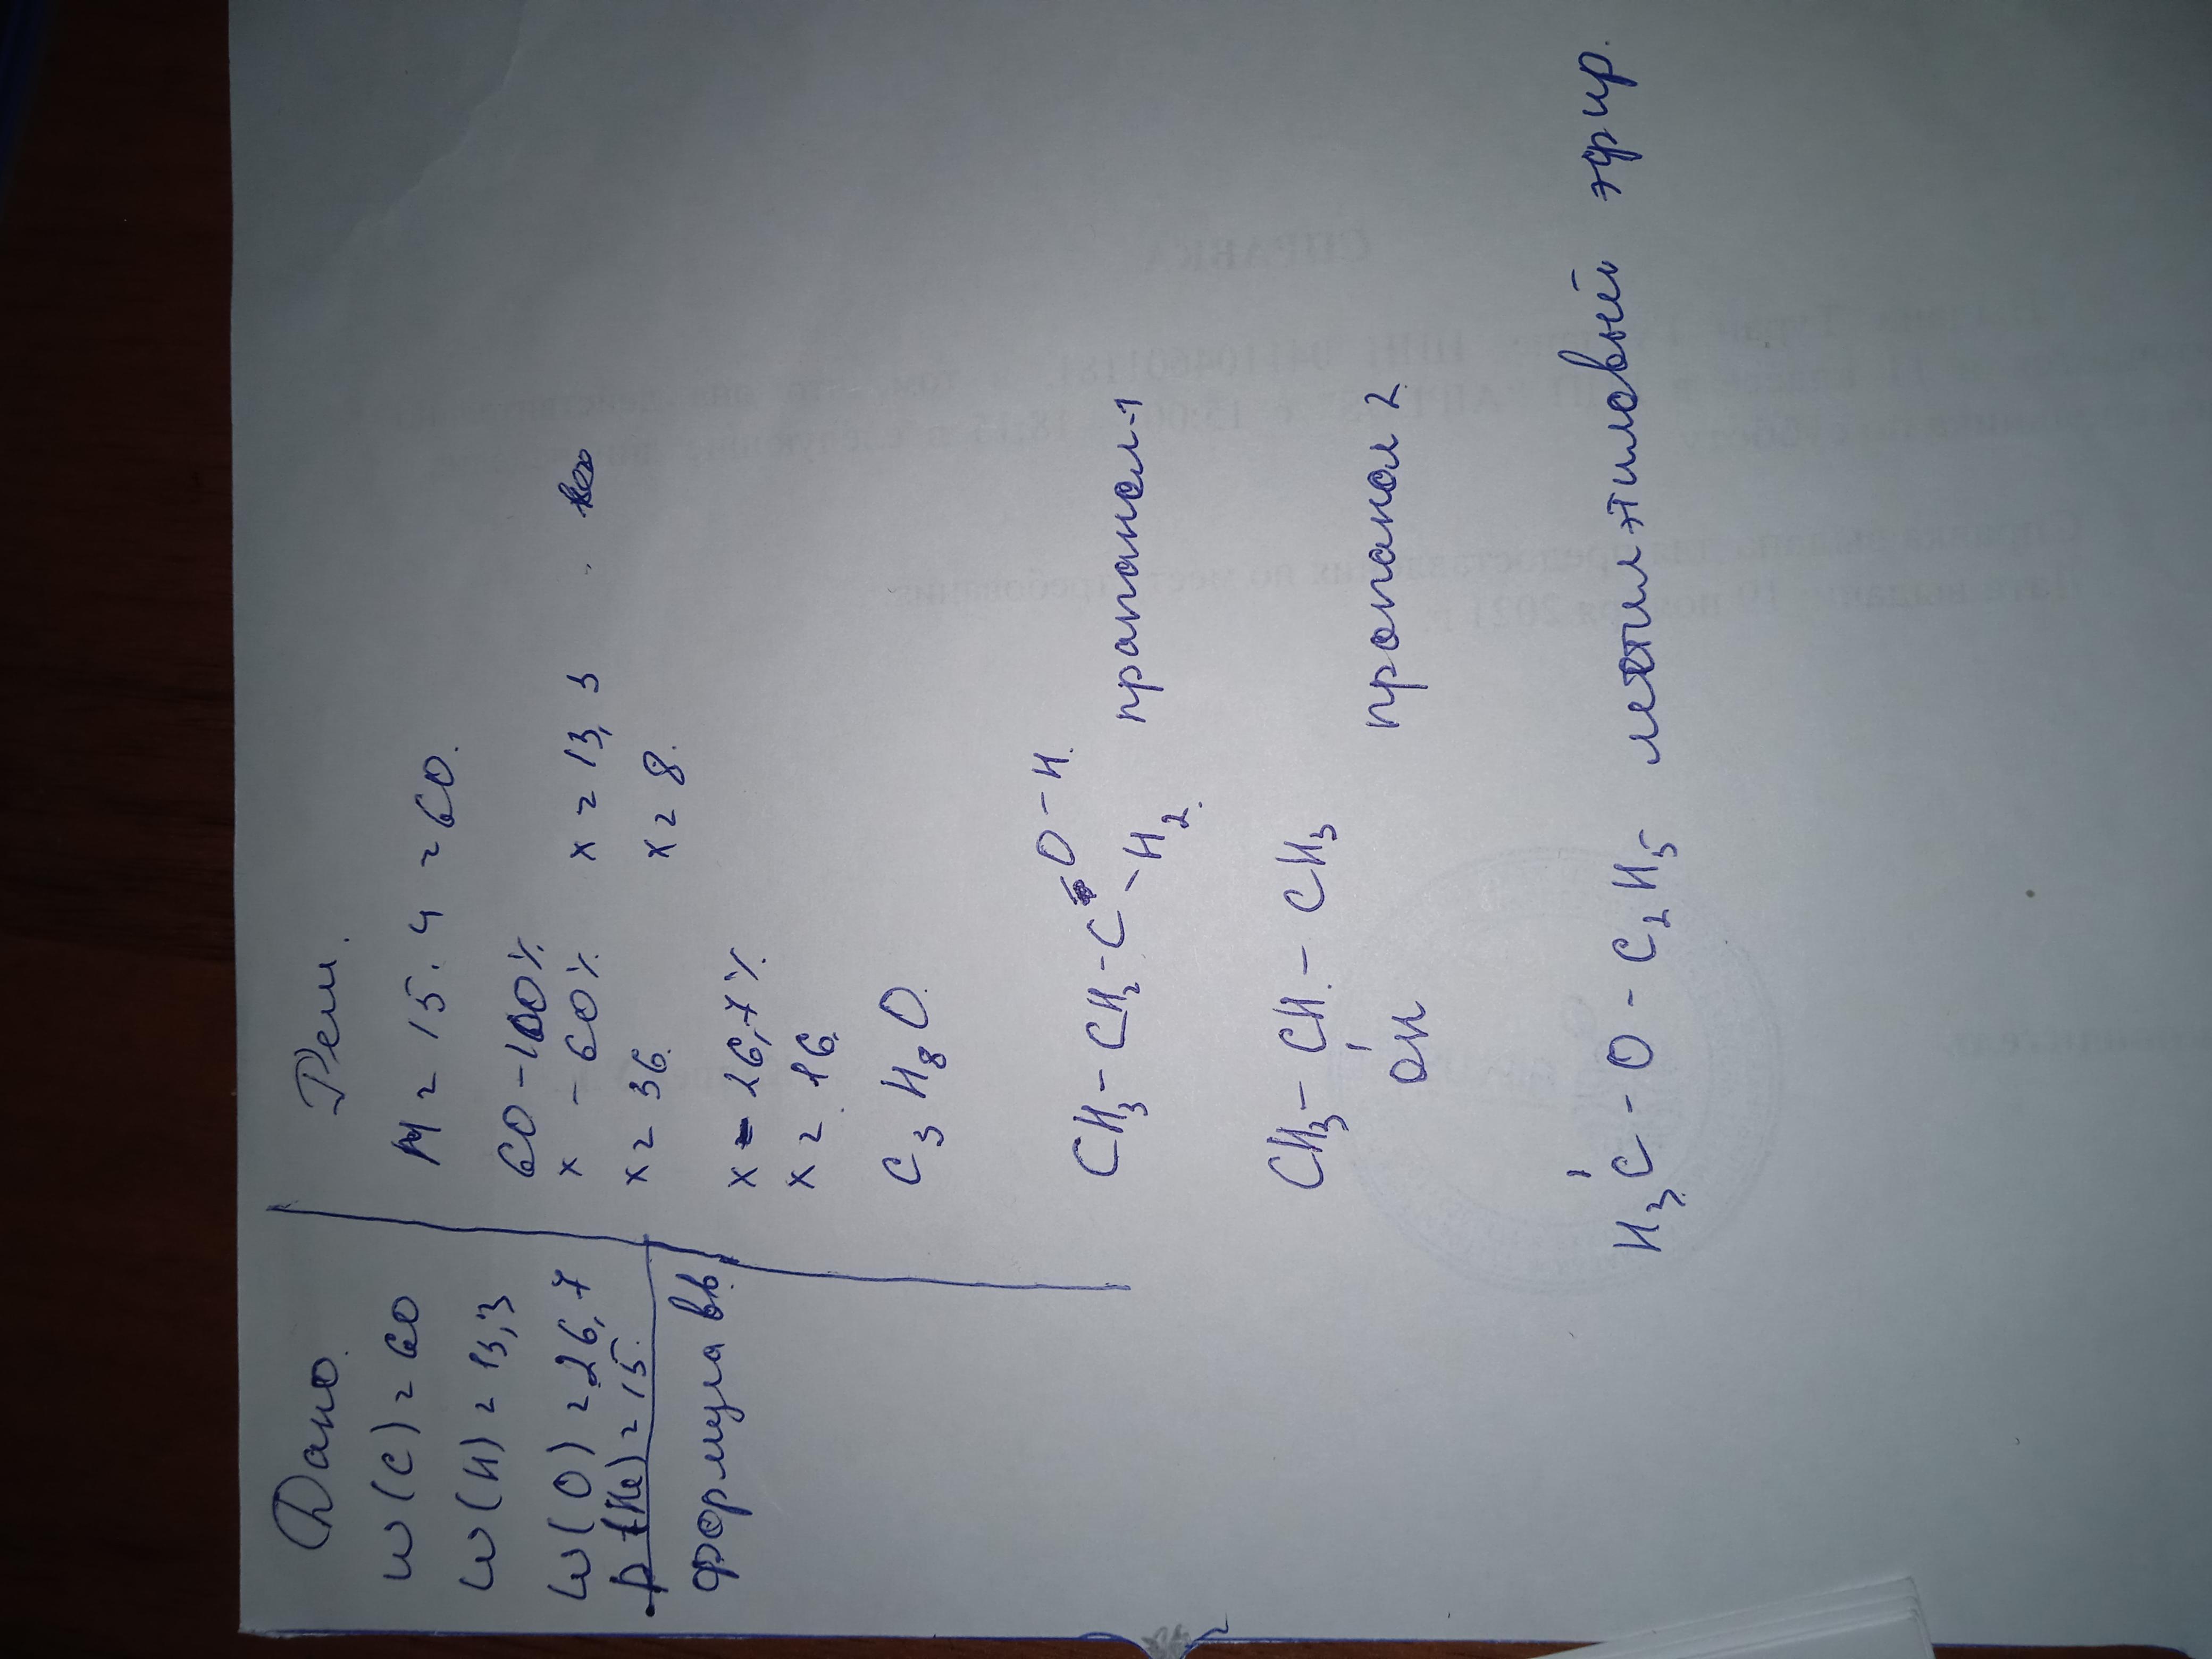 Дано.
w(C) = 60
w(H) = 13,3
w(O) = 26,7
D(He) = 15.
формула вв.
Реш.
M = 15 · 4 = 60.
60 - 100%
x - 60%
x = 36.
x = 13,3
x = 8.
x - 26,7%
x = 16.
C3H8O.
CH3 - CH2 - C - O - H.
- H2.
пропанол-1
CH3 - CH - CH3
OH
пропанол 2
H3C - O - C2H5 метилэтиловый эфир.
СПРАВКА